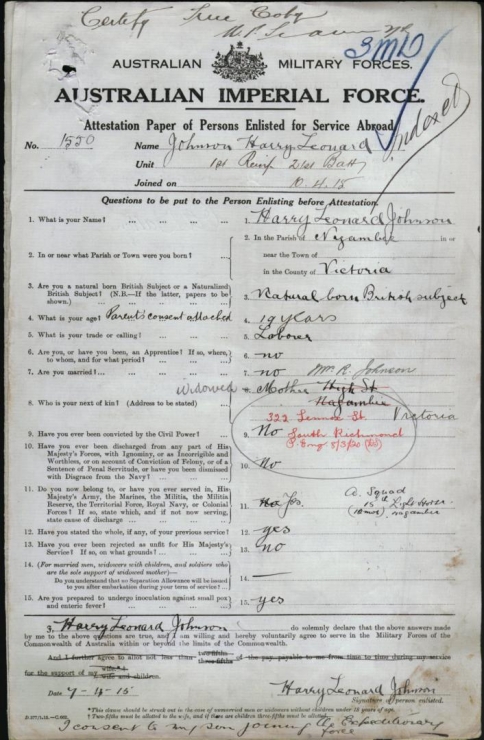 Certify True Copy
3MD
Indexed
AUSTRALIAN MILITARY FORCES.
AUSTRALIAN IMPERIAL FORCE.
Attestation Paper of Persons Enlisted for Service Abroad
No. 1550 Name Johnson Harry Leonard
Unit 1st Reinf 21st Batt
Joined on 10.4.15
Questions to be put to the Person Enlisting before Attestation.
1. What is your Name? 1. Harry Leonard Johnson
2. In or near what Parish or Town were you born? 2. In the Parish of in or
near the Town of
in the County of Victoria
3. Are you a natural born British Subject or a Naturalized
British Subject? (N.B.—If the latter, papers to be
shown.) 3. Natural born British subject
4. What is your age? Parent's consent attached 4. 19 years
5. What is your trade or calling? 5. Laborer
6. Are you, or have you been, an Apprentice? If so, where,
to whom, and for what period? 6. no
7. Are you married? 7. no Mrs R. Johnson
widowed Mother High St
8. Who is your next of kin? (Address to be stated) 8. Nagambie Victoria
322 Lennox St.
9. Have you ever been convicted by the Civil Power? 9. No South Richmond
10. Have you ever been discharged from any part of His
Majesty's Forces, with Ignominy, or as Incorrigible and
Worthless, or on account of Conviction of Felony, or of a
Sentence of Penal Servitude, or have you been dismissed
with Disgrace from the Navy? 10. No
11. Do you now belong to, or have you ever served in, His
Majesty's Army, the Marines, the Militia, the Militia
Reserve, the Territorial Force, Royal Navy, or Colonial
Forces? If so, state which, and if not now serving,
state cause of discharge 11. No Yes. A. Squad
15th Light Horse
Nagambie
12. Have you stated the whole, if any, of your previous service? 12. yes
13. Have you ever been rejected as unfit for His Majesty's
Service? If so, on what grounds? 13. no
14. (For married men, widowers with children, and soldiers who
are the sole support of widowed mother)—
Do you understand that no Separation Allowance will be issued to
you after embarkation during your term of service? 14. —
15. Are you prepared to undergo inoculation against small pox
and enteric fever? 15. yes
I, Harry Leonard Johnson do solemnly declare that the above answers made
by me to the above questions are true, and I am willing and hereby voluntarily agree to serve in the Military Forces of the
Commonwealth of Australia within or beyond the limits of the Commonwealth.
And I further agree to allot not less than two-fifths three-fifths of the pay payable to me from time to time during my service
for the support of my wife wife and children.
Date 7-4-15 Harry Leonard Johnson
Signature of person enlisted.
*This clause should be struck out in the case of unmarried men or widowers without children under 18 years of age.
† Two-fifths must be allotted to the wife, and if there are children three-fifths must be allotted.
I consent to my son joining the Expeditionary
force